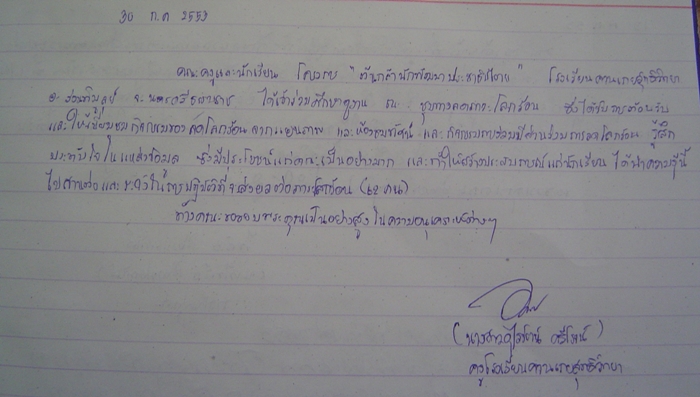 30 ก.ค 2553
คณะครูและนักเรียน โครงการ "ต้นกล้านักพัฒนาประชาธิปไตย" โรงเรียนคานเรายสุทธิวิทยา
อ. ร่อนพิบูลย์ จ. นครศรีธรรมราช ได้เข้าร่วมศึกษาดูงาน ณ ชุมทางลดภาวะโลกร้อน ซึ่งได้รับการต้อนรับ
และให้เยี่ยมชมกิจกรรมของลดโลกร้อน จากแผนภาพ และห้องชมวีดีทัศน์ และกิจกรรมการมีส่วนร่วมการลดโลกร้อน รู้สึก
ประทับใจในแหล่งข้อมูล ซึ่งมีประโยชน์แก่คณะเป็นอย่างมาก และทำให้สร้างประสบการณ์แก่นักเรียน ได้นำความรู้นี้
ไปศึกษาต่อและ ในการปฏิบัติที่ส่งผลต่อภาวะโลกร้อน (62 คน)
ทางคณะขอขอบพระคุณเป็นอย่างสูงในความอนุเคราะห์ต่างๆ
(นางสาว )
ครูโรงเรียน สุทธิวิทยา